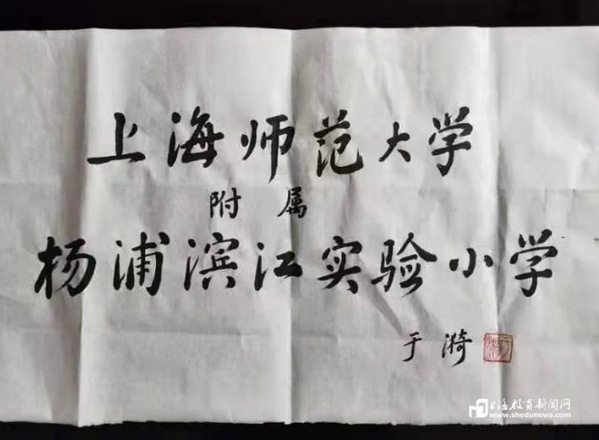 上海师范大学
附属
杨浦滨江实验小学
于漪
上海教育新闻网
www.shedunews.com